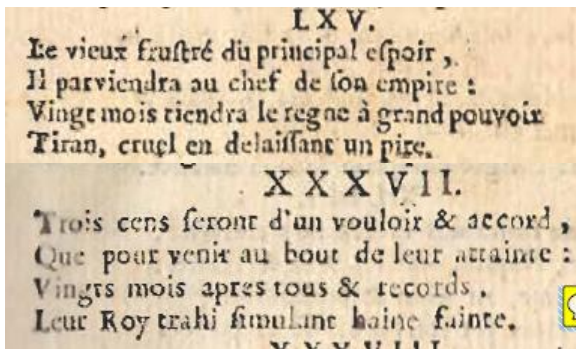 LXV.
Le vieux frustré du principal espoir,
Il parviendra au chef de son empire :
Vingt mois tiendra le regne à grand pouvoir
Tiran, cruel en delaissant un pire.
XXXVII.
Trois cens seront d'un vouloir & accord,
Que pour venir au bout de leur attainte :
Vingts mois apres tous & records,
Leur Roy trahi simulant haine fainte.
XXXVIII.